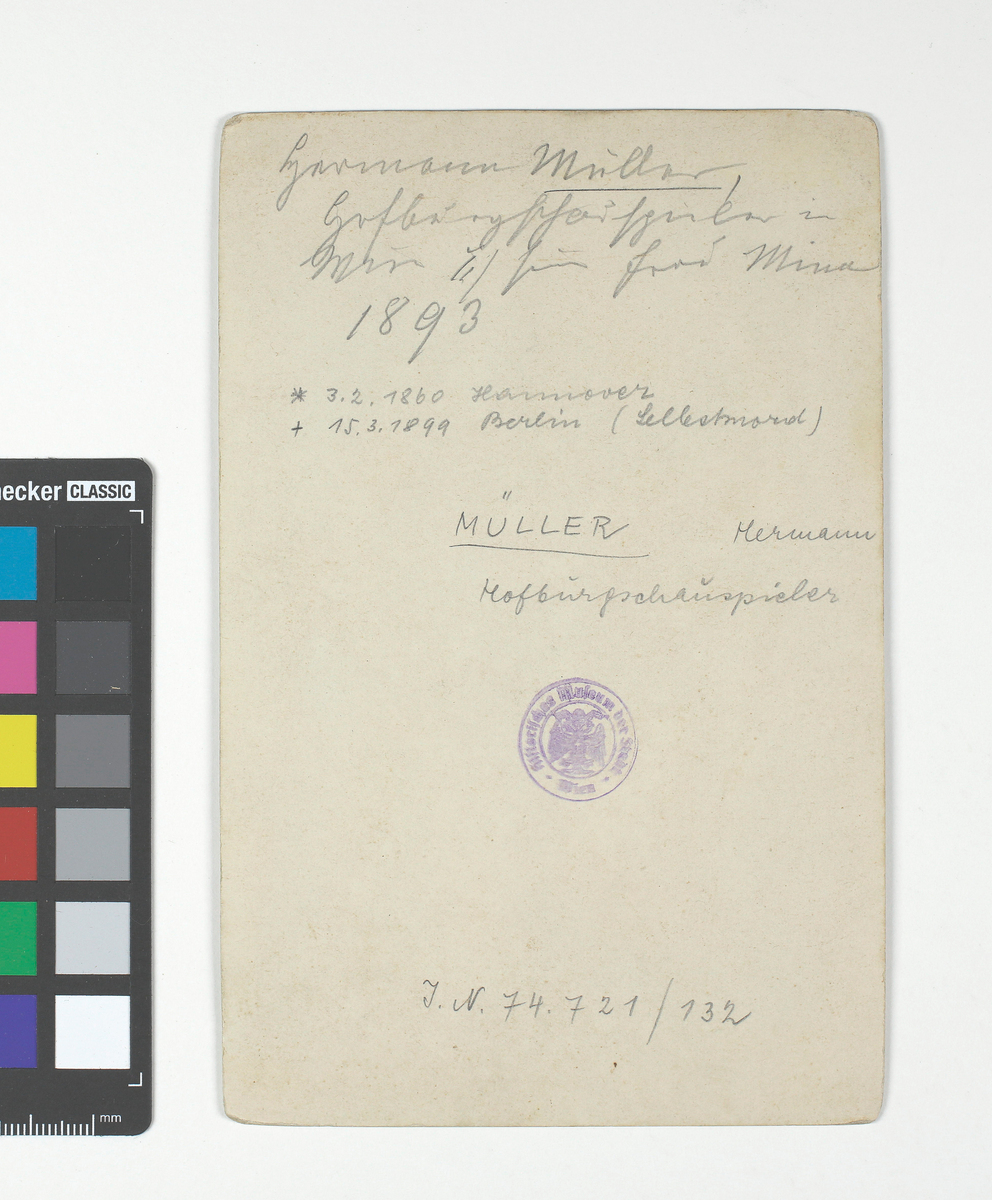 Hermann Müller,
Hofburgschauspieler in
Wien u/ sein Frau Mina
1893
* 3.2.1860 Hannover
+ 15.3.1899 Berlin (Selbstmord)
MÜLLER Hermann
Hofburgschauspieler
Historisches Museum der Stadt
Wien
J.N. 74.721/132
ecker CLASSIC
mm